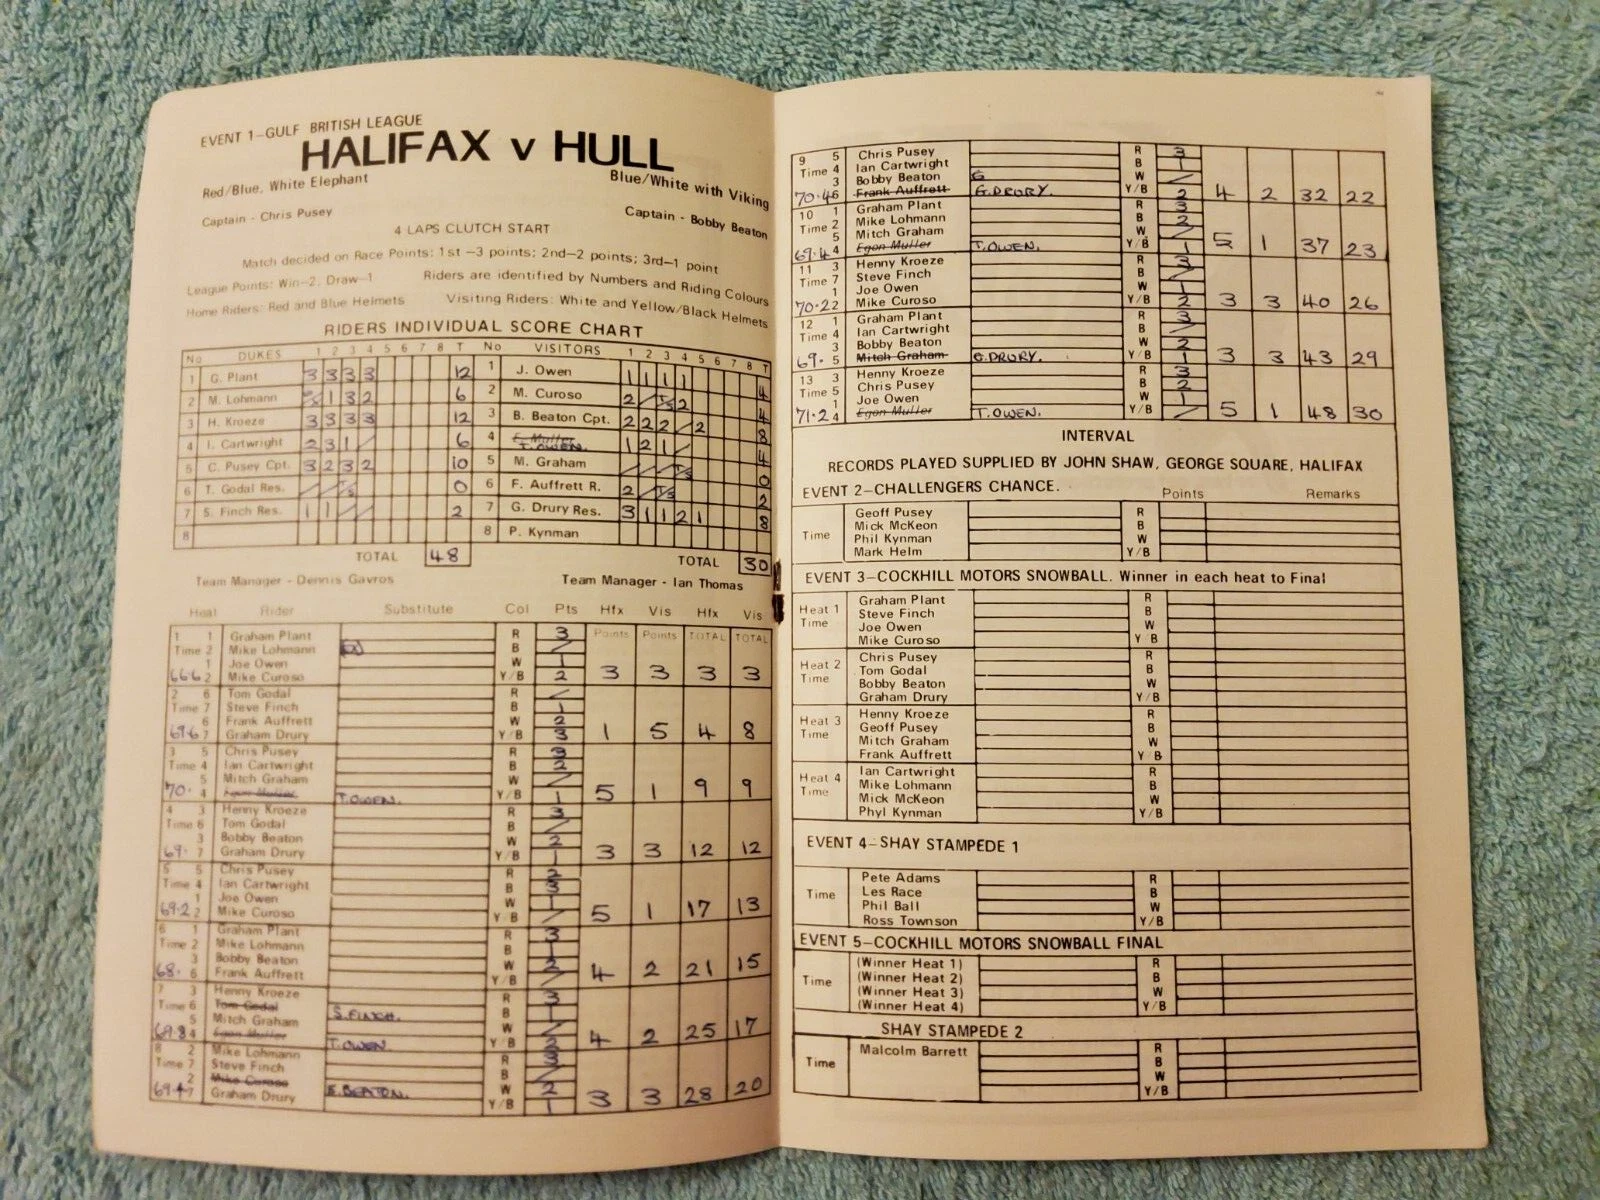 EVENT 1-GULF BRITISH LEAGUE
HALIFAX v HULL
Red/Blue, White Elephant Blue/White with Viking
Captain - Chris Pusey Captain - Bobby Beaton
4 LAPS CLUTCH START
Match decided on Race Points: 1st -3 points; 2nd-2 points; 3rd-1 point
League Points: Win-2, Draw-1 Riders are identified by Numbers and Riding Colours
Home Riders: Red and Blue Helmets Visiting Riders: White and Yellow/Black Helmets
RIDERS INDIVIDUAL SCORE CHART
No DUKES 1 2 3 4 5 6 7 8 T No VISITORS 1 2 3 4 5 6 7 8 T
1 G. Plant 3 3 3 3 12 1 J. Owen 1 1 1 1 4
2 M. Lohmann 1 3 2 6 2 M. Curoso 2 / T/S 2 4
3 H. Kroeze 3 3 3 3 12 3 B. Beaton Cpt. 2 2 2 / 2 8
4 I. Cartwright 2 3 1 / 6 4 E. Muller T. OWEN. 1 2 1 / 4
5 C. Pusey Cpt. 3 2 3 2 10 5 M. Graham / / / T/S 0
6 T. Godal Res. / / T/S 0 6 F. Auffrett R. 2 / T/S 2
7 S. Finch Res. 1 1 / / 2 7 G. Drury Res. 3 1 1 2 1 8
8 8 P. Kynman
TOTAL 48 TOTAL 30
Team Manager - Dennis Gavros Team Manager - Ian Thomas
Heat Rider Substitute Col Pts Hfx Vis Hfx Vis
Points Points TOTAL TOTAL
1 1 Graham Plant R 3
Time 2 Mike Lohmann B /
1 Joe Owen W 1
66.6 2 Mike Curoso Y/B 2 3 3 3 3
2 6 Tom Godal R /
Time 7 Steve Finch B 1
6 Frank Auffrett W 2
69.6 7 Graham Drury Y/B 3 1 5 4 8
3 5 Chris Pusey R 3
Time 4 Ian Cartwright B 2
5 Mitch Graham W /
70. 4 Egon Muller T. OWEN. Y/B 1 5 1 9 9
4 3 Henny Kroeze R 3
Time 6 Tom Godal B /
3 Bobby Beaton W 2
69. 7 Graham Drury Y/B 1 3 3 12 12
5 5 Chris Pusey R 2
Time 4 Ian Cartwright B 3
1 Joe Owen W 1
69.2 2 Mike Curoso Y/B / 5 1 17 13
6 1 Graham Plant R 3
Time 2 Mike Lohmann B 1
3 Bobby Beaton W 2
68. 6 Frank Auffrett Y/B / 4 2 21 15
7 3 Henny Kroeze R 3
Time 6 Tom Godal S. FINCH. B 1
5 Mitch Graham W /
69.8 4 Egon Muller T. OWEN. Y/B 2 4 2 25 17
8 2 Mike Lohmann R 3
Time 7 Steve Finch B /
2 Mike Curoso B. BEATON. W 2
69.4 7 Graham Drury Y/B 1 3 3 28 20
9 5 Chris Pusey R 3
Time 4 Ian Cartwright B 1
3 Bobby Beaton W /
70.4 6 Frank Auffrett G. DRURY. Y/B 2 4 2 32 22
10 1 Graham Plant R 3
Time 2 Mike Lohmann B 2
5 Mitch Graham W /
69.4 4 Egon Muller T. OWEN. Y/B 1 5 1 37 23
11 3 Henny Kroeze R 3
Time 7 Steve Finch B /
1 Joe Owen W 1
70.2 2 Mike Curoso Y/B 2 3 3 40 26
12 1 Graham Plant R 3
Time 4 Ian Cartwright B /
3 Bobby Beaton W 2
69. 5 Mitch Graham G. DRURY. Y/B 1 3 3 43 29
13 3 Henny Kroeze R 3
Time 5 Chris Pusey B 2
1 Joe Owen W 1
71.2 4 Egon Muller T. OWEN. Y/B / 5 1 48 30
INTERVAL
RECORDS PLAYED SUPPLIED BY JOHN SHAW, GEORGE SQUARE, HALIFAX
EVENT 2-CHALLENGERS CHANCE. Points Remarks
Geoff Pusey R
Mick McKeon B
Time Phil Kynman W
Mark Helm Y/B
EVENT 3-COCKHILL MOTORS SNOWBALL. Winner in each heat to Final
Graham Plant R
Heat 1 Steve Finch B
Time Joe Owen W
Mike Curoso Y/B
Chris Pusey R
Heat 2 Tom Godal B
Time Bobby Beaton W
Graham Drury Y/B
Henny Kroeze R
Heat 3 Geoff Pusey B
Time Mitch Graham W
Frank Auffrett Y/B
Ian Cartwright R
Heat 4 Mike Lohmann B
Time Mick McKeon W
Phyl Kynman Y/B
EVENT 4-SHAY STAMPEDE 1
Pete Adams R
Les Race B
Time Phil Ball W
Ross Townson Y/B
EVENT 5-COCKHILL MOTORS SNOWBALL FINAL
(Winner Heat 1) R
(Winner Heat 2) B
Time (Winner Heat 3) W
(Winner Heat 4) Y/B
SHAY STAMPEDE 2
Malcolm Barrett R
B
Time W
Y/B